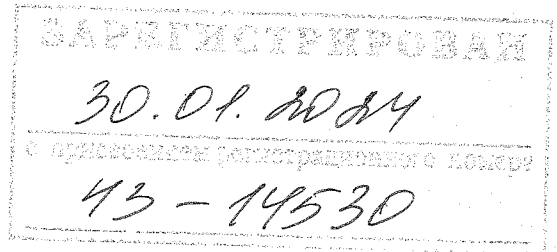 ЗАРЕГИСТРИРОВАН
30.01.2024
с присвоением регистрационного номера
43-14530